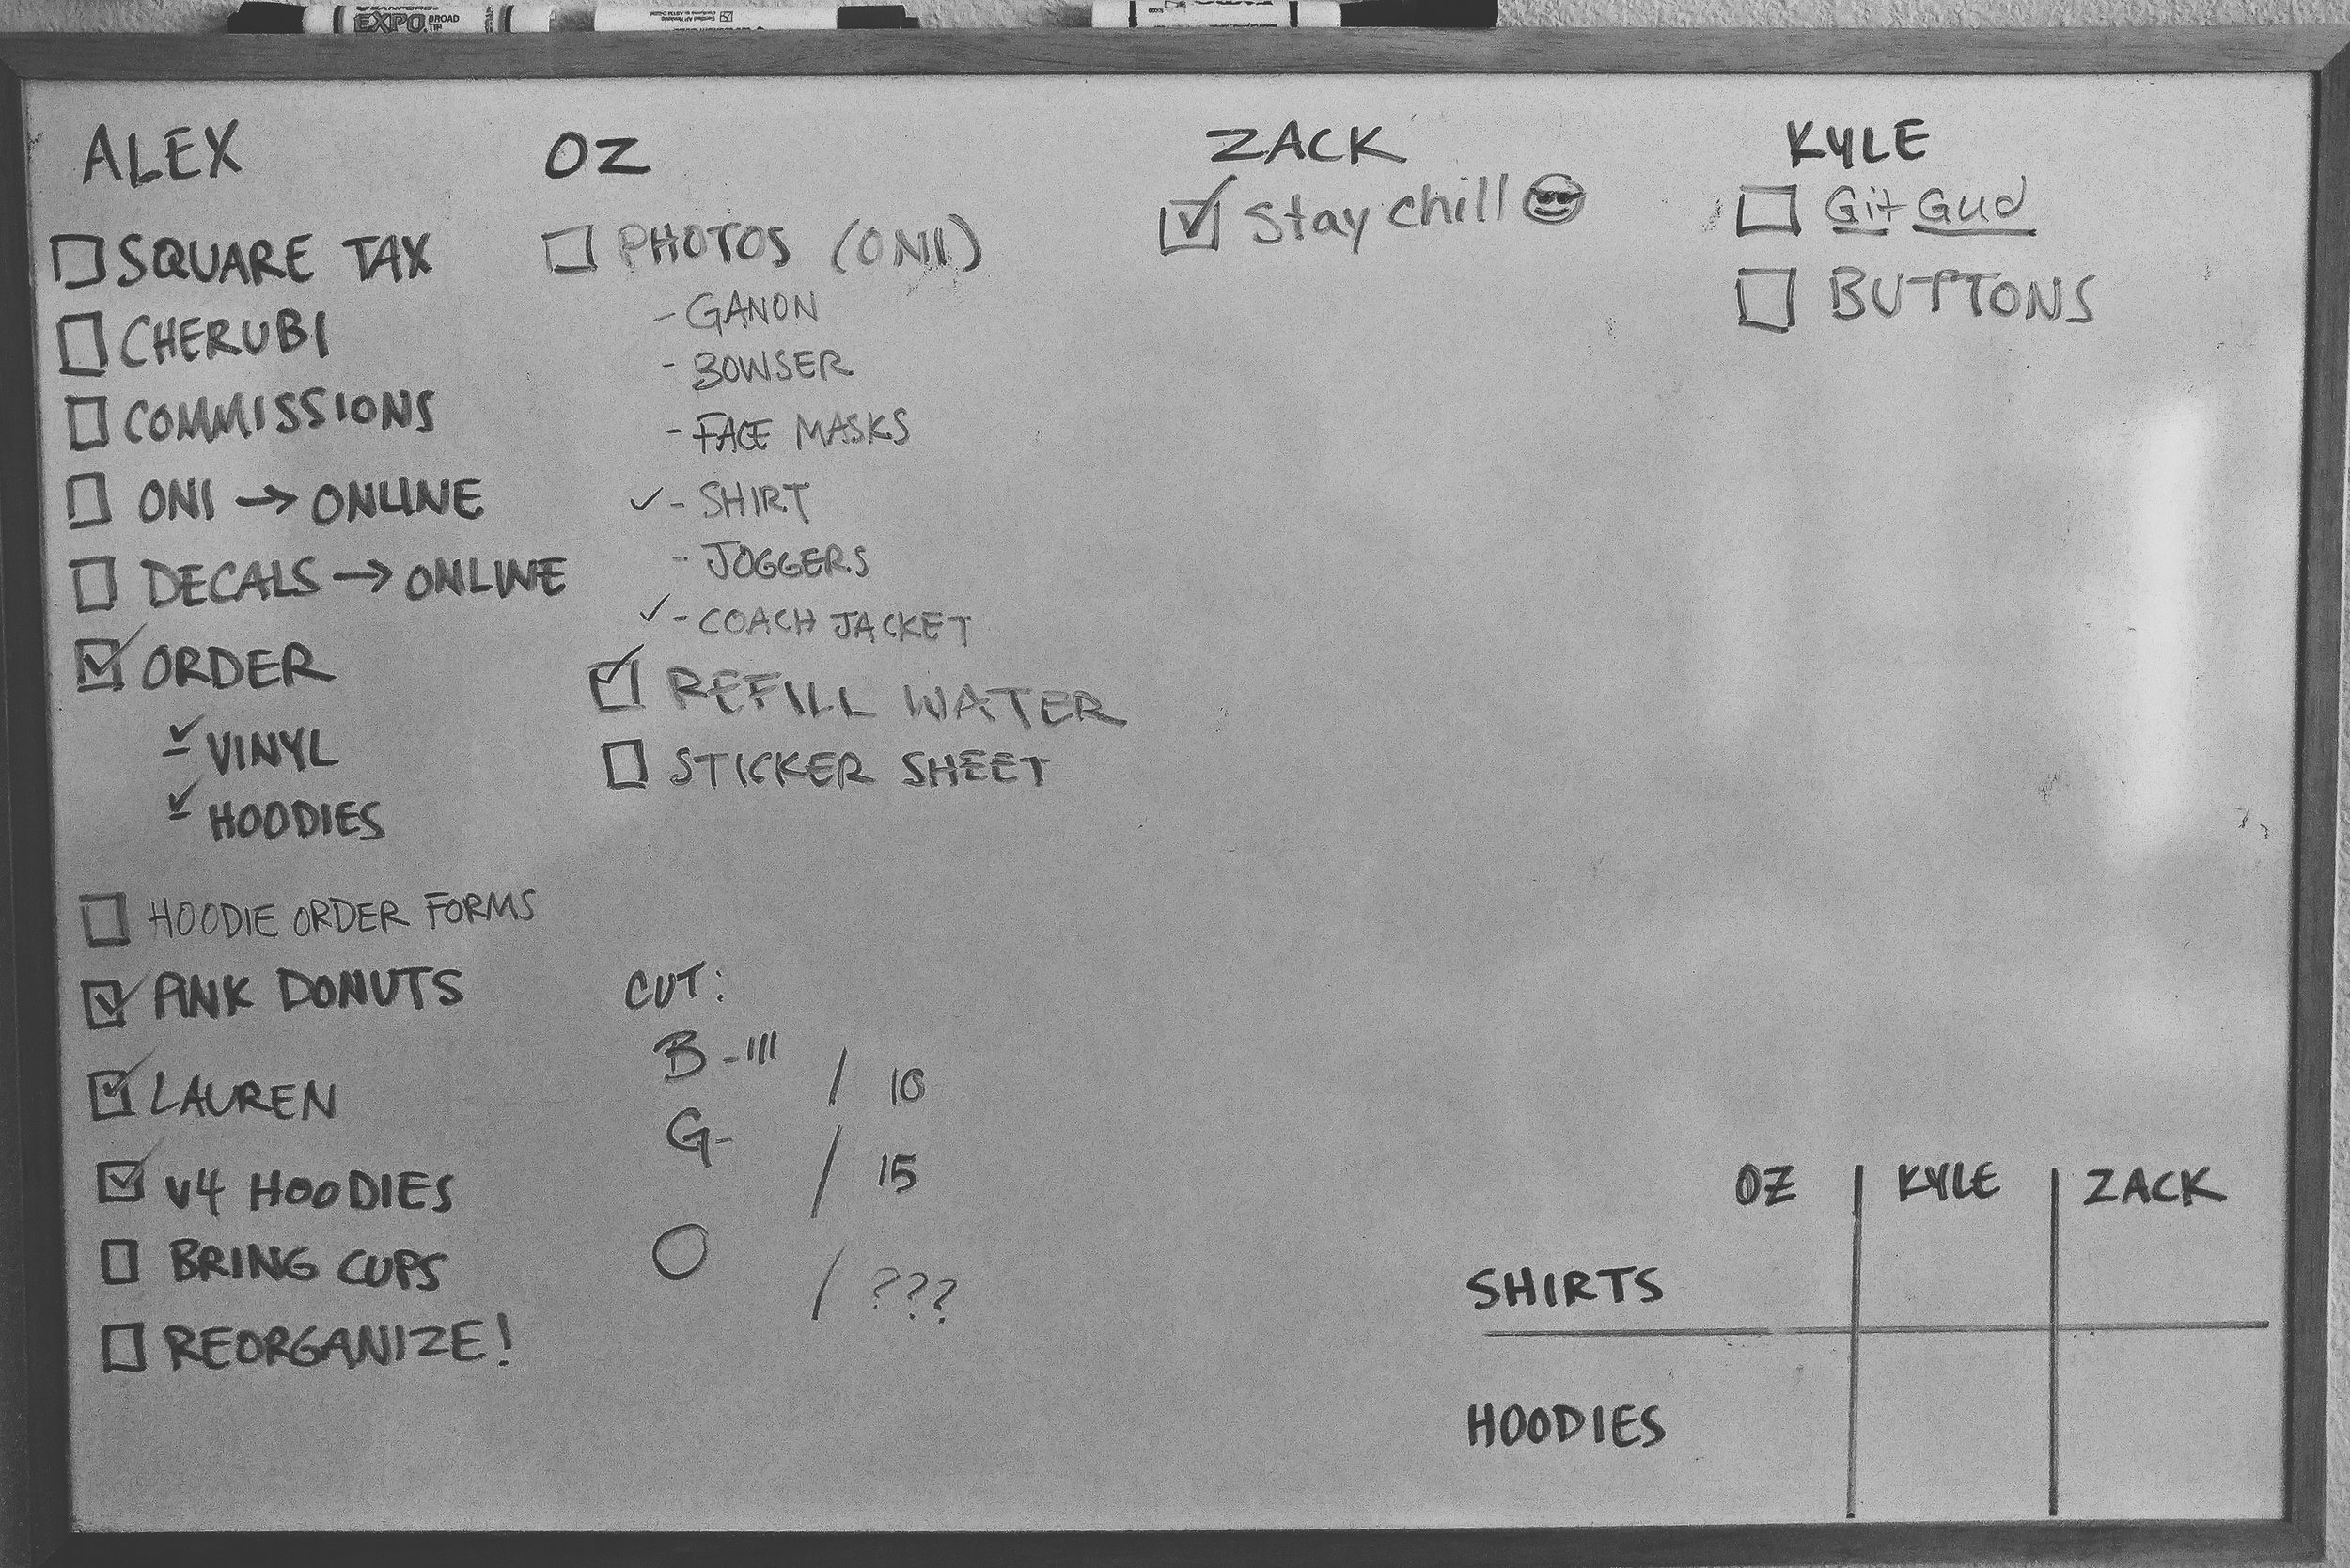 EXPO BROAD TIP
ALEX
☐ SQUARE TAX
☐ CHERUBI
☐ COMMISSIONS
☐ ONI → ONLINE
☐ DECALS → ONLINE
☑ ORDER
✓- VINYL
✓- HOODIES
☐ HOODIE ORDER FORMS
☑ PINK DONUTS
☑ LAUREN
☑ V4 HOODIES
☐ BRING CUPS
☐ REORGANIZE!
OZ
☐ PHOTOS (ONI)
- GANON
- BOWSER
- FACE MASKS
✓ - SHIRT
- JOGGERS
✓ - COACH JACKET
☑ REFILL WATER
☐ STICKER SHEET
CUT:
B - III / 10
G - / 15
O / ???
ZACK
☑ Stay chill 😎
KYLE
☐ Git Gud
☐ BUTTONS
OZ | KYLE | ZACK
SHIRTS
HOODIES